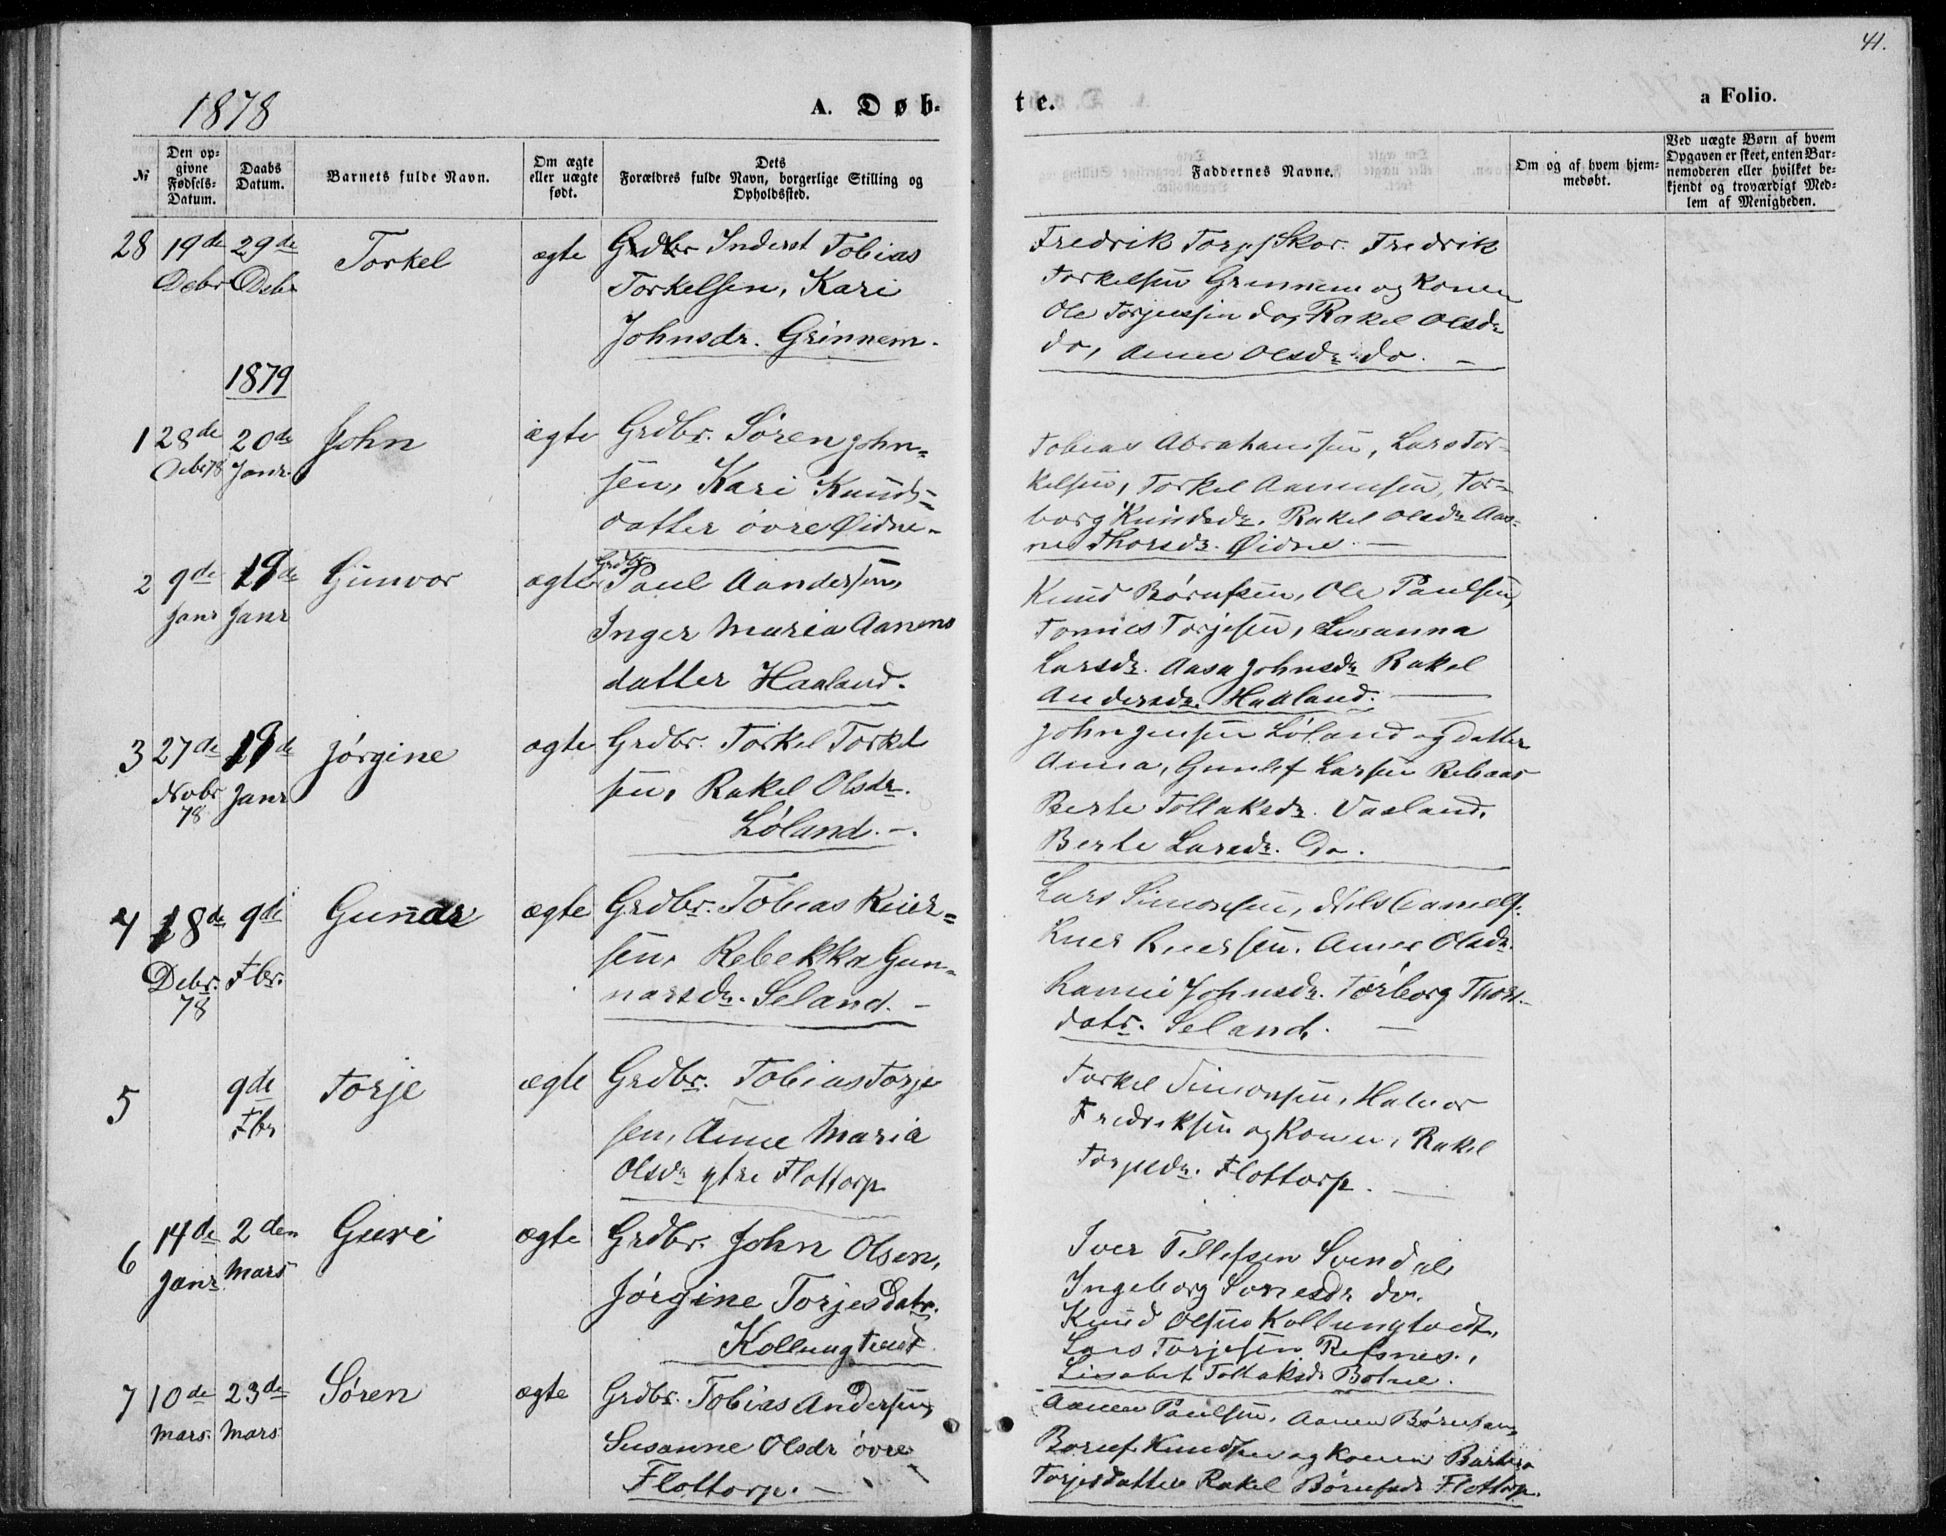 41.
1878
A. Døb-
te.
a Folio.
№
Den op-
givne
Fødsels-
Datum.
Daabs
Datum.
Barnets fulde Navn.
Om ægte
eller uægte
født.
Dets
Forældres fulde Navn, borgerlige Stilling og
Opholdssted.
Faddernes Navne.
Om og af hvem hjem-
medøbt.
Ved uægte Børn af hvem
Opgaven er skeet, enten Bar-
nemoderen eller hvilket be-
kjendt og troværdigt Med-
lem af Menigheden.
28 19de Debr 29de Debr Torkel ægte
Inderst Tobias
Torkelsen, Kari
Johnsdr. Grinnem.
Fredrik Skor. Fredrik
Torkelsen Grinnem og Konen
Ole Torjussen do, Rakel Olsdr
do, Anne Olsdr do. -
1879
1 28de Debr 78 20de Janr. John ægte
Grdbr. Søren John=
sen, Kari Knuds=
datter øvre Øidne-
Tobias Abrahamsen, Lars Tor-
kelsen, Torkel Aanensen, Tor=
borg Knudsdr. Rakel Olsdr Aas-
ne Thorsdr. Øidne. -
2 9de Janr 19de Janr Gunvor ægte
Grdbr.
Paul Aandersen,
Inger Maria Aanens
datter Haaland.
Knud Børufsen, Ole Paulsen,
Tomes Torjesen, Susanna
Larsdr. Aasa Johnsdr Rakel
Andersdr. Haaland. -
3 27de Nobr 78 19de Janr Jørgine ægte
Grdbr. Torkel Torkel
sen, Rakel Olsdr.
Løland. -.
John Jensen Løland og datter
Anna, Gunlef Larsen
Berte Tollaksdr. Vasland.
Berte Larsdr. Do.
4 18de Debr. 78 9de Fbr. Gunar ægte
Grdbr. Tobias Knier=
sen, Rebekka Gun=
narsdr. Seland. -
Lars Simonsen, Nils
Olsdr.
Johnsdr. Torborg Thors-
datr. Seland. -
5 9de Fbr Torje ægte
Grdbr. Tobias Torje
sen, Anne Maria
Olsdr ytre Flottorp
Torkel Simonsen, Halvor
Fredriksen og Konen, Rakel
Torjesdr. Flottorp. -
6 14de Janr. 2den Mars Guri ægte
Grdbr. John Olsen,
Jørgine Torjesdatr.
Kollungtveit.
Iver Tellefsen Svindal
Ingeborg do.
Knud Olsen Kollungtvedt,
Lars Torjesen Refsnes.,
Lisabet Tollaksdr Botne.
7 10de Mars. 23de Mars Søren ægte
Grdbr. Tobias Andersen,
Susanne Olsdr øvre
Flottorp. -
Aanen Paulsen, Aanen Børufsen,
Børuf Knudsen og Konen
Torjesdatter Rakel Børufsdr Flottorp.